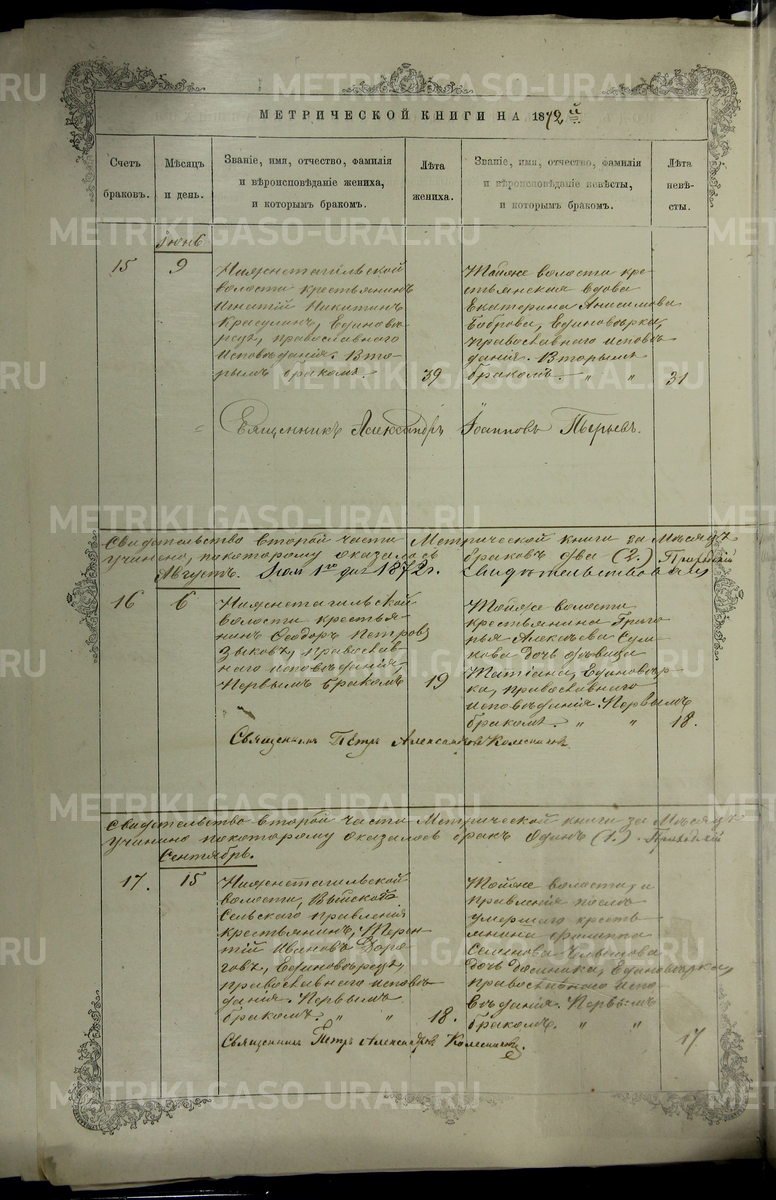 METRIKI.GASO-URAL.RU
МЕТРИЧЕСКОЙ КНИГИ НА 1872 й
Счетъ браковъ.
Мѣсяцъ и день.
Званіе, имя, отчество, фамилія
и вѣроисповѣданіе жениха,
и которымъ бракомъ.
Лѣта жениха.
Званіе, имя, отчество, фамилія
и вѣроисповѣданіе невѣсты,
и которымъ бракомъ.
Лѣта невѣ-
сты.
Іюнь
15
9
Нижнетагильской
волости крестьянинъ
Игнатій Никитинъ
Красулинъ, Единовѣ-
рецъ, православнаго
исповѣданія. Вто-
рымъ бракомъ.
39
Тойже волости кре-
стьянская вдова
Екатерина Анисимова
Боброва, Единовѣрка,
православнаго исповѣ-
данія. Вторымъ
бракомъ. " "
31
Священникъ Александръ Іоанновъ Пырьевъ.
Свидѣтельство второй части Метрической книги за Мѣсяцъ
учинено, по которому оказалось браковъ два (2.)
Августъ. Іюля 1го дня 1872 г. свидѣтельствовалъ
16
6
Нижнетагильской
волости крестья-
нинъ Ѳеодоръ Петровъ
Зыковъ, православ-
наго исповѣданія,
Первымъ бракомъ
19
Тойже волости
крестьянина Григо-
рья Алексѣева
дочь дѣвица
Татіана, Единовѣр-
ка, православнаго
исповѣданія. Первымъ
бракомъ. " "
18.
Священникъ Петръ Александровъ Колесниковъ
Свидѣтельство второй части Метрической книги за Мѣсяцъ
учинено по которому оказалось бракъ Одинъ (1.)
Сентябрь.
17.
15
Нижнетагильской
волости, Выйскаго
Сельскаго правленія
крестьянинъ, Терен-
тій Ивановъ
Единовѣрецъ,
православнаго исповѣ-
данія. Первымъ
бракомъ. " "
18.
Тойже волости, и
правленія послѣ
умершаго кресть-
янина Филиппа
Семенова
дочь Единовѣрка,
православнаго испо-
вѣданія. Первымъ
бракомъ. " "
17
Священникъ Петръ Александровъ Колесниковъ.